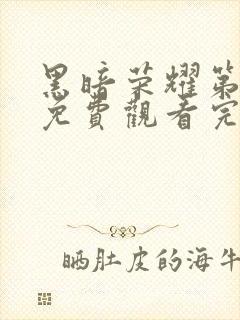 黑暗荣耀第
免費觀看完
晒肚皮的海牛